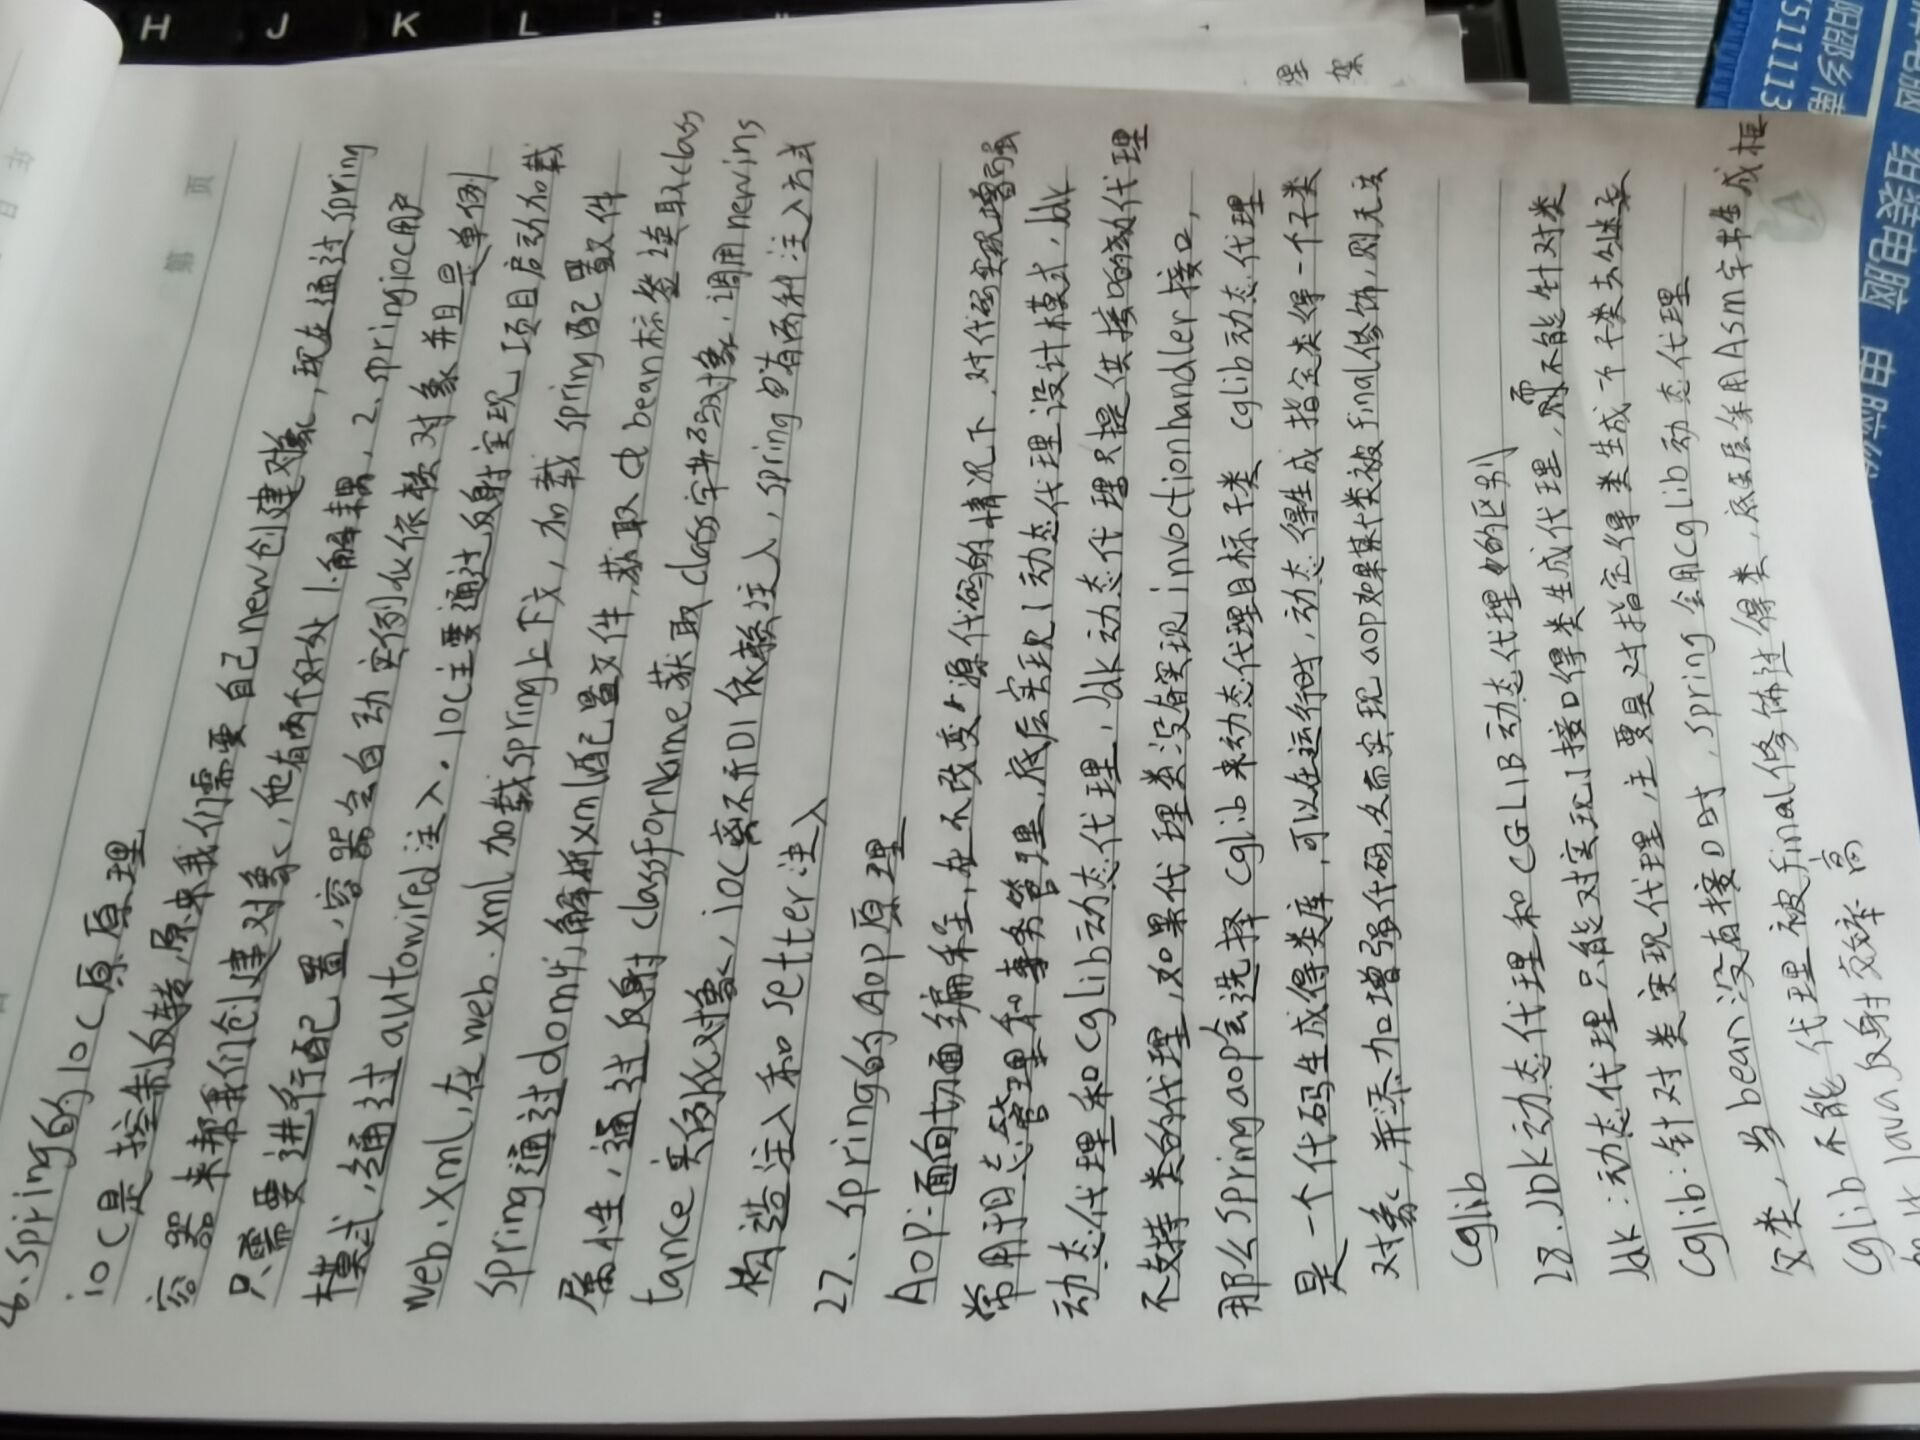 6.Spring的IOC原理
iOC是控制反转,原来我们需要自己new创建对象,现在通过Spring
容器来帮我们创建对象,他有两个好处1.解耦,2.springioc用户
只需要进行配置,容器会自动实例化依赖对象并且是单例
模式,通过autowired注入.IOC主要通过反射实现项目启动加载
web.xml,在web.xml加载spring上下文,加载spring配置文件
spring通过dom4j解析xml配置文件,获取 bean标签读取class
属性,通过反射classforName获取class字节码对象,调用newins
tance实例化对象,iOC离不开DI依赖注入,spring 有两种注入方式
构造注入和setter注入
27、spring的AOP原理
AOP:面向切面编程,在不改变源代码的情况下,对代码实现增强
常用于日志管理和事务管理,底层实现动态代理设计模式,Jdk
动态代理和cglib动态代理,Jdk动态代理只提供接口的动态代理
不支持类的代理,如果代理类没有实现invoctionhandler接口,
那么springaop会选择cglib来动态代理目标子类 cglib动态代理
是一个代码生成得类库,可以在运行时,动态得生成指定类得一个子类
对象,并添加增强代码,从而实现aop如果某个类被final修饰,则无法
cglib
28.JDK动态代理和CGLIB动态代理的区别
Jdk:动态代理只能对实现接口得类生成代理,而不能针对类
cglib:针对类实现代理,主要是对指定得类生成一个子类去继承
父类,当bean没有接口时,spring会用cglib动态代理
cglib不能代理被final修饰过得类,底层采用Asm字节生成框
架 比Java反射效率高
H J K L
理
架
第 页
组装电脑
电脑
S11113